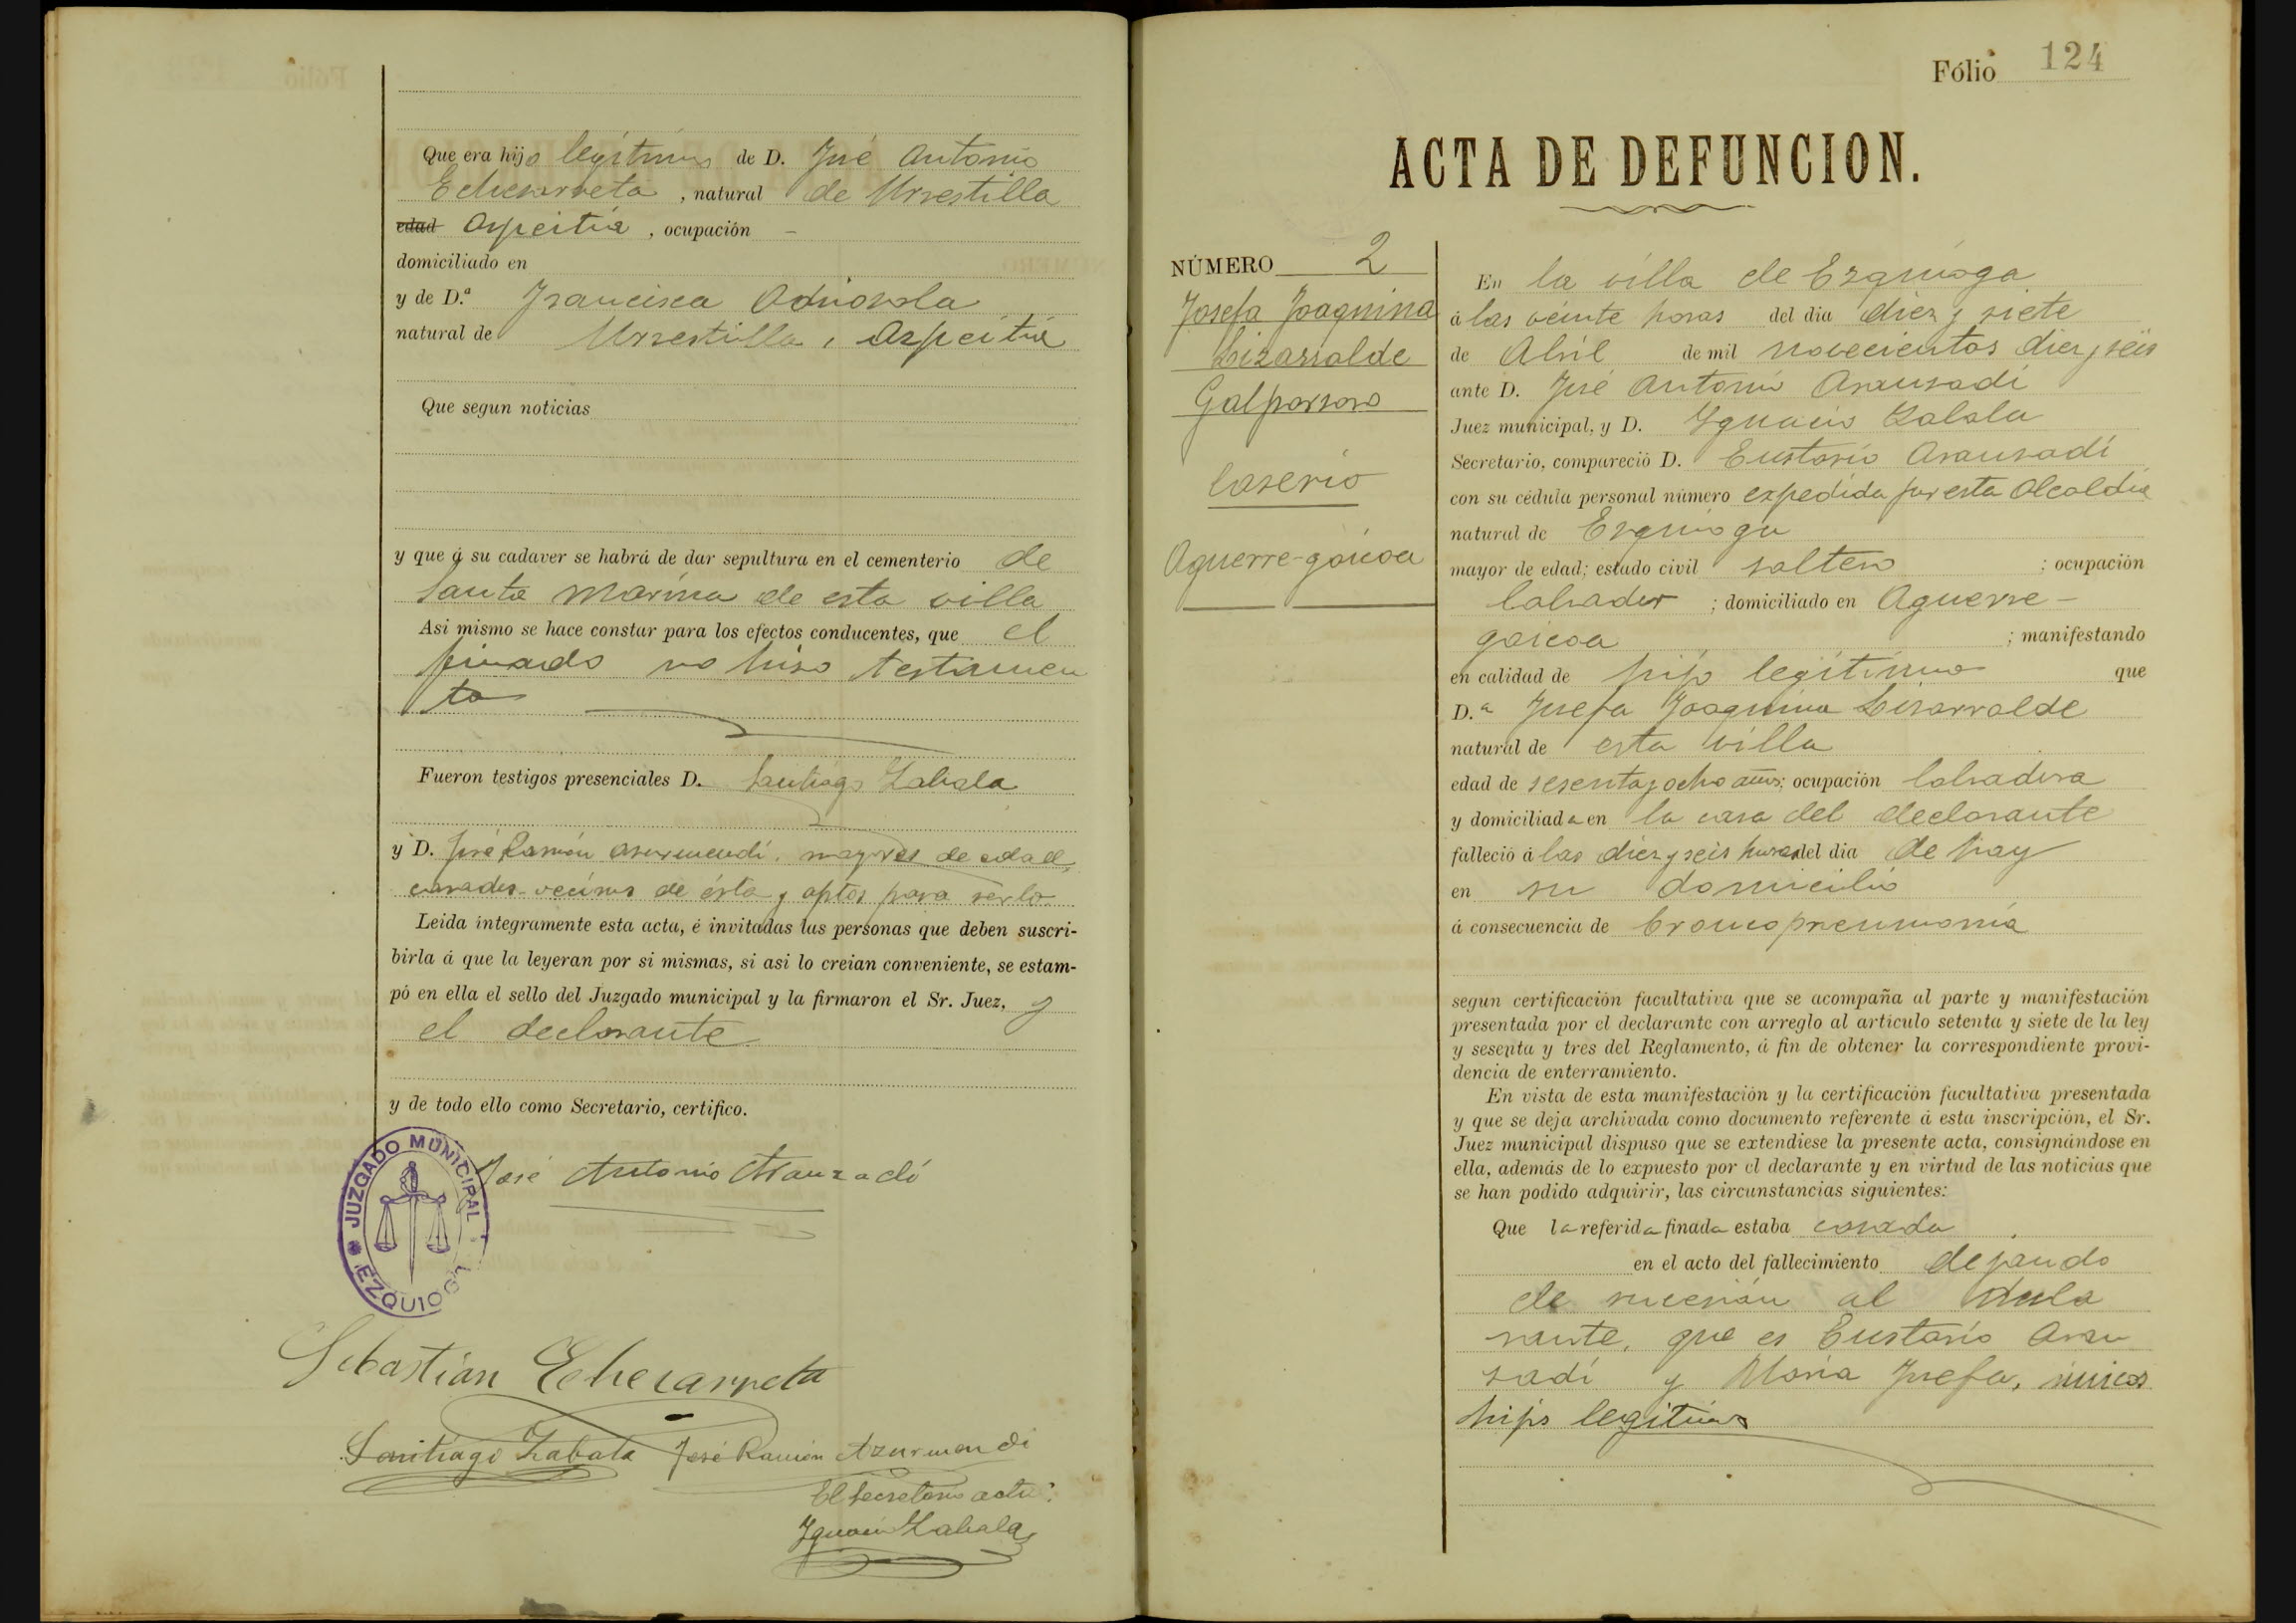 Que era hijo legítimo de D. José Antonio
Echevarreta, natural de Urrestilla
edad Azpeitia, ocupación -
domiciliado en
y de D.ª Francisca Odriozola
natural de Urrestilla, Azpeitia
Que segun noticias
y que á su cadaver se habrá de dar sepultura en el cementerio de
Santa Marina de esta villa
Asi mismo se hace constar para los efectos conducentes, que el
finado no hizo testamen
to
Fueron testigos presenciales D. Santiago Zabala
y D. José Ramón Azurmendi, mayores de edad,
casados vecinos de ésta y aptos para serlo.
Leida íntegramente esta acta, é invitadas las personas que deben suscri-
birla á que la leyeran por si mismas, si asi lo creian conveniente, se estam-
pó en ella el sello del Juzgado municipal y la firmaron el Sr. Juez, y
el declarante
y de todo ello como Secretario, certifico.
JUZGADO MUNICIPAL EZQUIOGA
José Antonio Aranzadi
Sebastián Echevarreta
Santiago Zabala José Ramón Azurmendi
El Secretario
Ignacio Zabala
Fólio 124
ACTA DE DEFUNCION.
NÚMERO 2
Josefa Joaquina
Lizarralde
Galparsoro
Caserio
Aguerre-goicoa
En la villa de Ezquioga
á las veinte horas del dia diez y siete
de Abril de mil novecientos diez y seis
ante D. José Antonio Aranzadi
Juez municipal, y D. Ignacio Zabala
Secretario, compareció D. Eustasio Aranzadi
con su cédula personal número expedida por esta Alcaldía
natural de Ezquioga
mayor de edad; estado civil soltero ; ocupación
labrador ; domiciliado en Aguerre-
goicoa ; manifestando
en calidad de hijo legítimo que
D.ª Josefa Joaquina Lizarralde
natural de esta villa
edad de sesenta y ocho años; ocupación labradora
y domiciliada en la casa del declarante
falleció á las diez y seis horas del dia de hoy
en su domicilio
á consecuencia de bronco pneumonía
segun certificación facultativa que se acompaña al parte y manifestación
presentada por el declarante con arreglo al artículo setenta y siete de la ley
y sesenta y tres del Reglamento, á fin de obtener la correspondiente provi-
dencia de enterramiento.
En vista de esta manifestación y la certificación facultativa presentada
y que se deja archivada como documento referente á esta inscripción, el Sr.
Juez municipal dispuso que se extendiese la presente acta, consignándose en
ella, además de lo expuesto por el declarante y en virtud de las noticias que
se han podido adquirir, las circunstancias siguientes:
Que la referida finada estaba casada
en el acto del fallecimiento dejando
de sucesión al decla
rante, que es Eustasio Aran
zadi y María Josefa, únicos
hijos legítimos